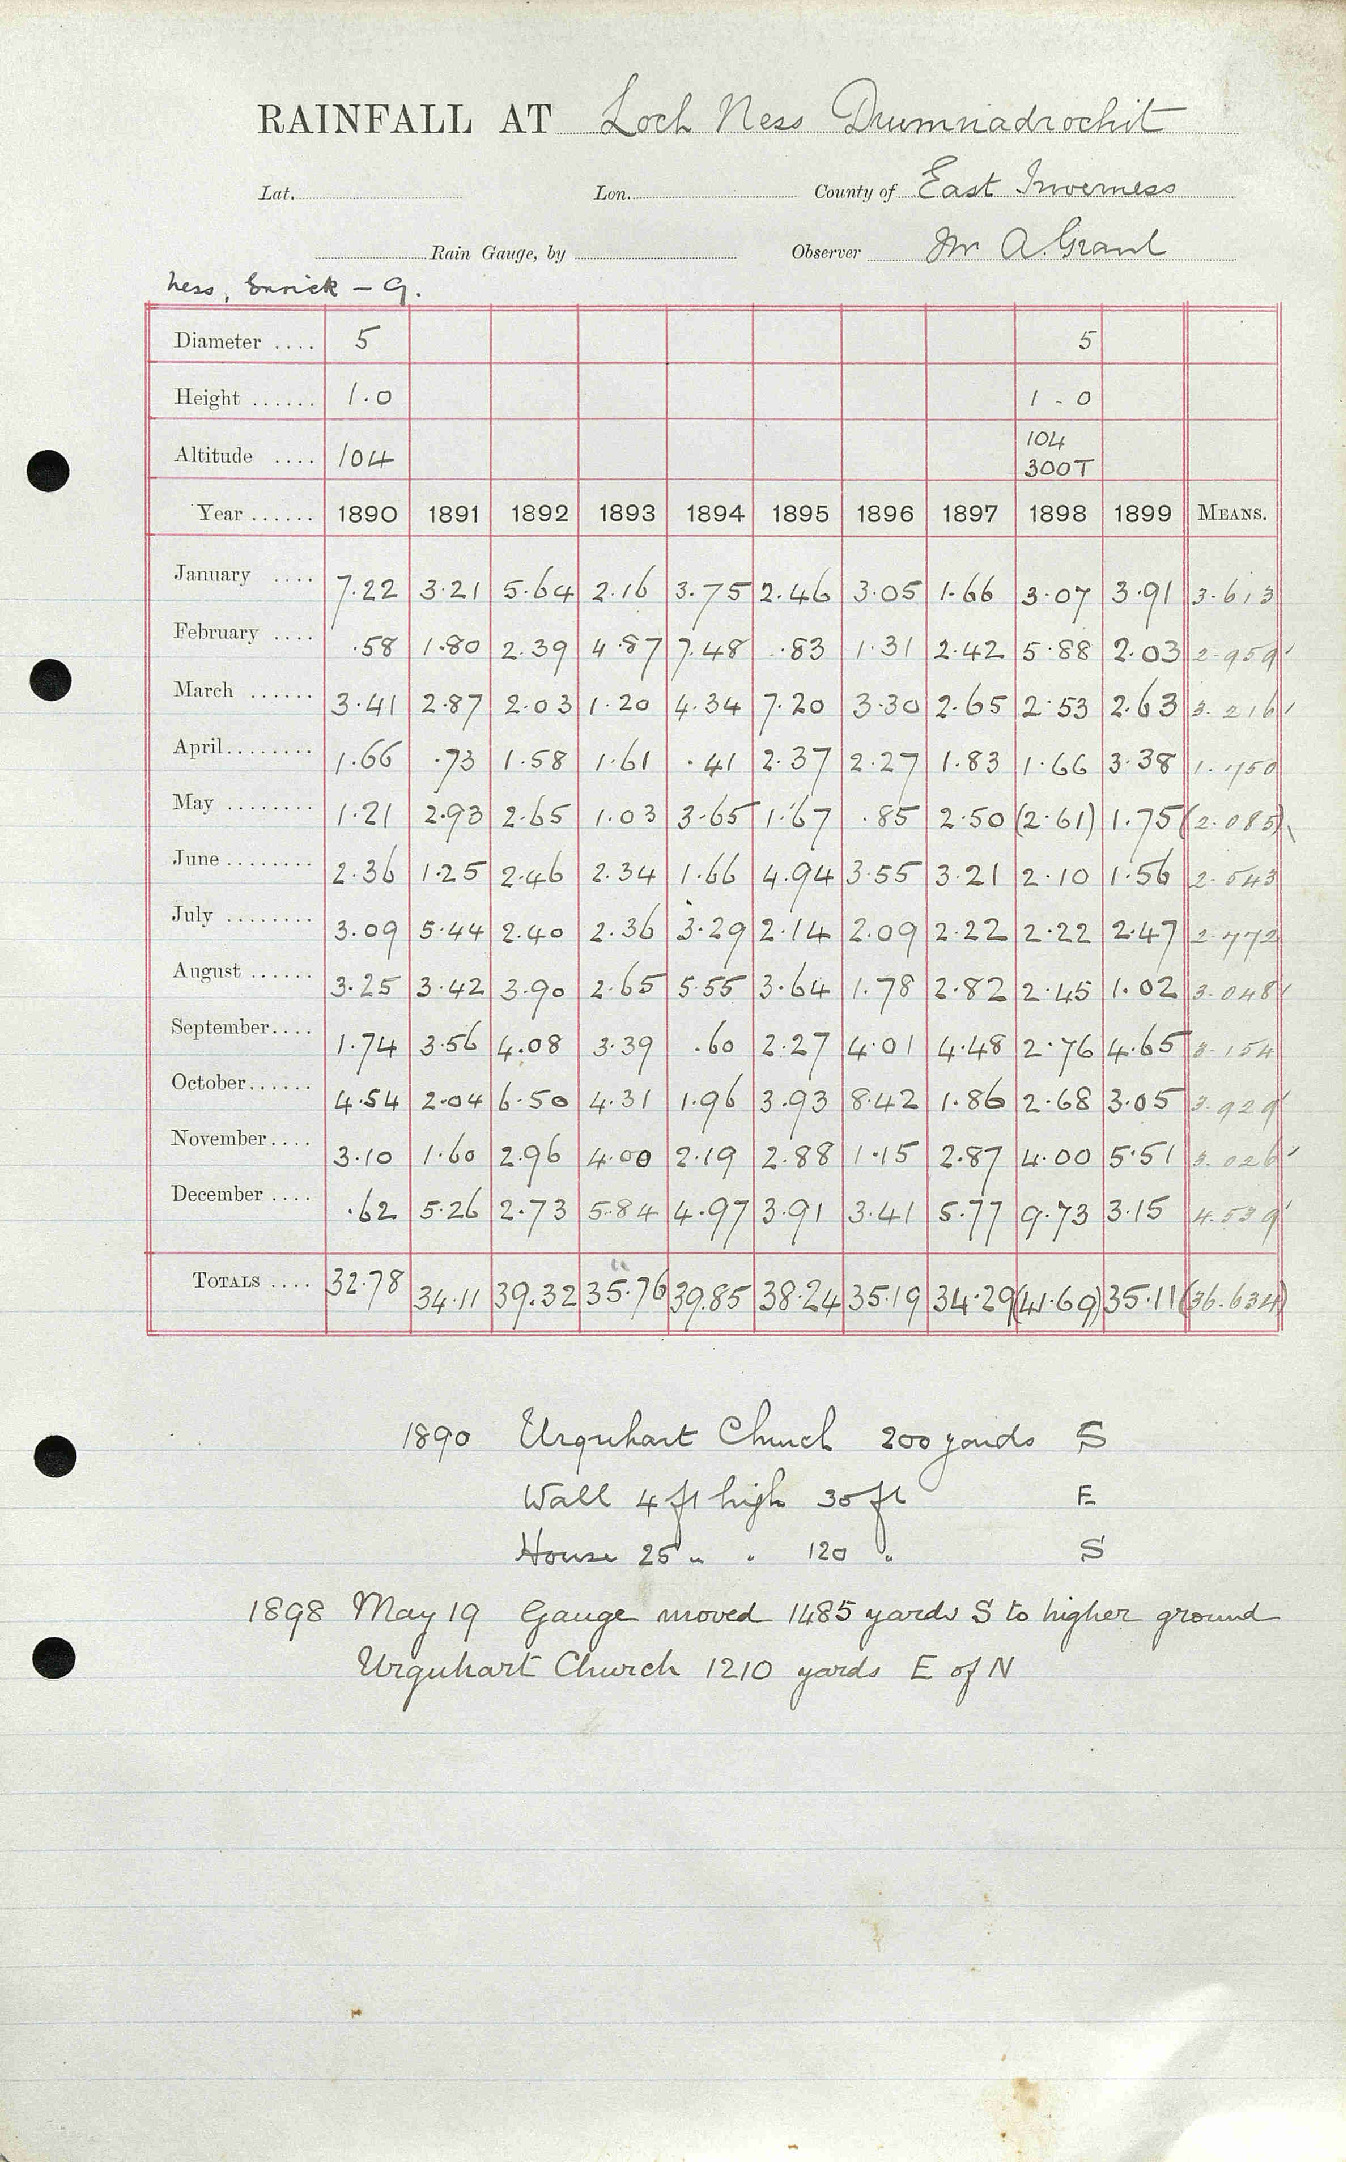 RAINFALL AT Loch Ness Drumnadrochit
Lat. Lon. County of East Inverness
Rain Gauge, by Observer Mr A. Grant
Ness, Enrick – G.
Diameter .... 5 5
Height ...... 1.0 1-0
Altitude .... 104 104
300T
Year ...... 1890 1891 1892 1893 1894 1895 1896 1897 1898 1899 MEANS.
January .... 7.22 3.21 5.64 2.16 3.75 2.46 3.05 1.66 3.07 3.91 3.613
February .... .58 1.80 2.39 4.87 7.48 .83 1.31 2.42 5.88 2.03 2.959
March ...... 3.41 2.87 2.03 1.20 4.34 7.20 3.30 2.65 2.53 2.63 3.216
April........ 1.66 .73 1.58 1.61 .41 2.37 2.27 1.83 1.66 3.38 1.750
May ........ 1.21 2.93 2.65 1.03 3.65 1.67 .85 2.50 (2.61) 1.75 (2.085)
June ........ 2.36 1.25 2.46 2.34 1.66 4.94 3.55 3.21 2.10 1.56 2.543
July ........ 3.09 5.44 2.40 2.36 3.29 2.14 2.09 2.22 2.22 2.47 2.772
August ...... 3.25 3.42 3.90 2.65 5.55 3.64 1.78 2.82 2.45 1.02 3.048
September.... 1.74 3.56 4.08 3.39 .60 2.27 4.01 4.48 2.76 4.65 3.154
October...... 4.54 2.04 6.50 4.31 1.96 3.93 8.42 1.86 2.68 3.05 3.929
November.... 3.10 1.60 2.96 4.00 2.19 2.88 1.15 2.87 4.00 5.51 3.026
December .... .62 5.26 2.73 5.84 4.97 3.91 3.41 5.77 9.73 3.15 4.539
TOTALS .... 32.78 34.11 39.32 35.76 39.85 38.24 35.19 34.29 (41.69) 35.11 (36.634)
1890 Urquhart Church 200 yards S
Wall 4 ft high 30 ft E
House 25 " " 120 " S
1898 May 19 Gauge moved 1485 yards S to higher ground
Urquhart Church 1210 yards E of N